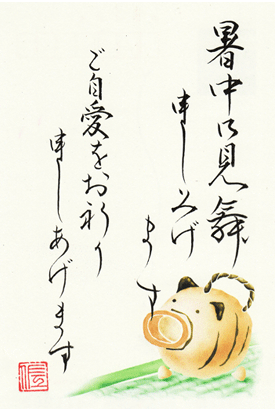 暑中御見舞
申し上げ
ます
ご自愛をお祈り
申しあげます
信